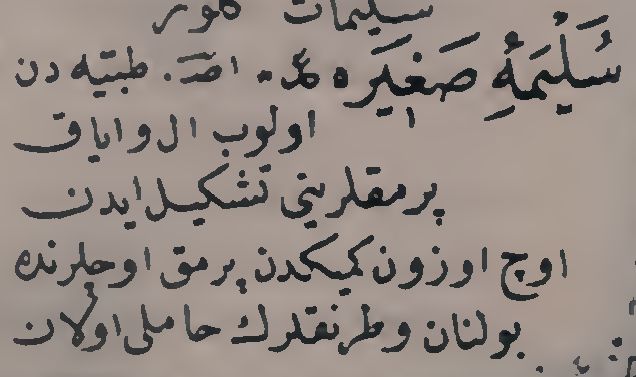 سليمات كوبر
سُلَيْمَۀِ صَغِيرَه عد. اصد. طبيه دن
اولوب ال و اياق
پرمقلرينى تشكيل ايدن
اوچ اوزون كميكدن پرمق اوجلرنده
بولنان و طرنقلرك حاملى اولان